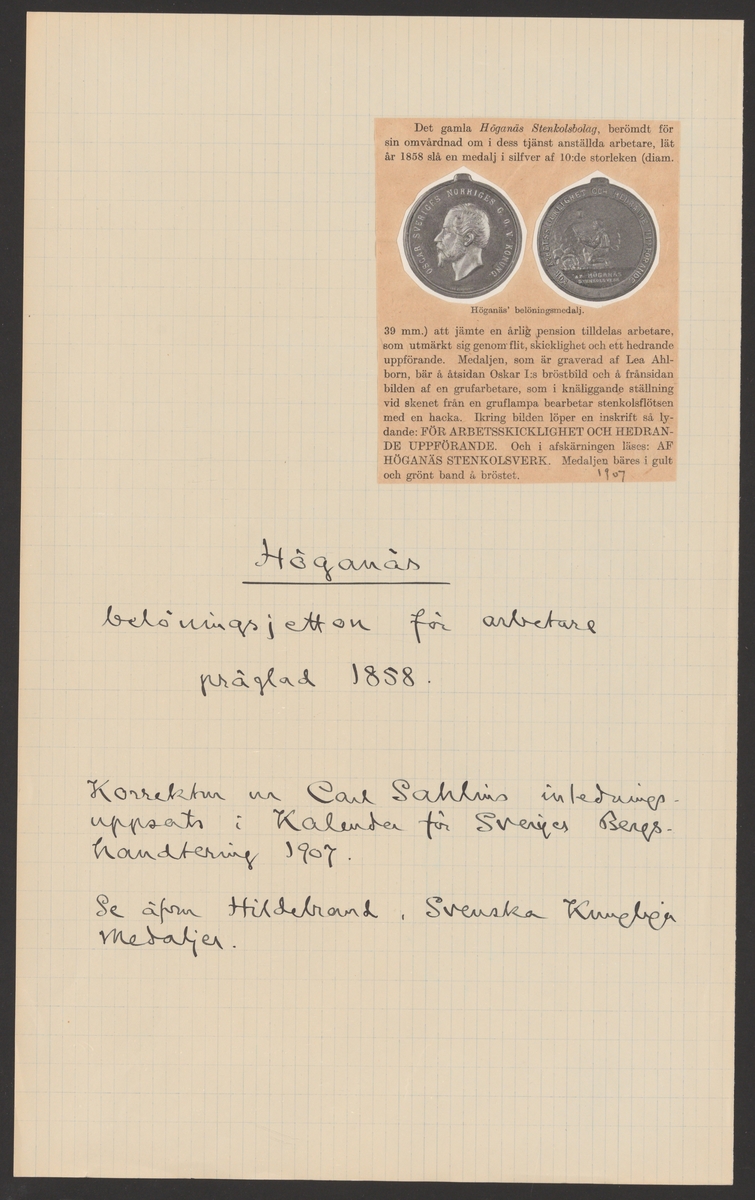 Det gamla Höganäs Stenkolsbolag, berömdt för
sin omvårdnad om i dess tjänst anställda arbetare, lät
år 1858 slå en medalj i silfver af 10:de storleken (diam.
OSCAR SVERIGES NORRIGES G. O. V. KONUNG
FÖR ARBETSSKICKLIGHET OCH HEDRANDE UPPFÖRANDE
AF HÖGANÄS
STENKOLSVERK
Höganäs' belöningsmedalj.
39 mm.) att jämte en årlig pension tilldelas arbetare,
som utmärkt sig genom flit, skicklighet och ett hedrande
uppförande. Medaljen, som är graverad af Lea Ahl-
born, bär å åtsidan Oskar I:s bröstbild och å frånsidan
bilden af en grufarbetare, som i knäliggande ställning
vid skenet från en gruflampa bearbetar stenkolsflötsen
med en hacka. Ikring bilden löper en inskrift så ly-
dande: FÖR ARBETSSKICKLIGHET OCH HEDRAN-
DE UPPFÖRANDE. Och i afskärningen läses: AF
HÖGANÄS STENKOLSVERK. Medaljen bäres i gult
och grönt band å bröstet.
1907
Höganäs
belöningsjetton för arbetare
präglad 1858.
Korrektur ur Carl Sahlins inlednings-
uppsats i Kalender för Sveriges Bergs-
handtering 1907.
Se äfven Hildebrand, Svenska Kungliga
Medaljer.